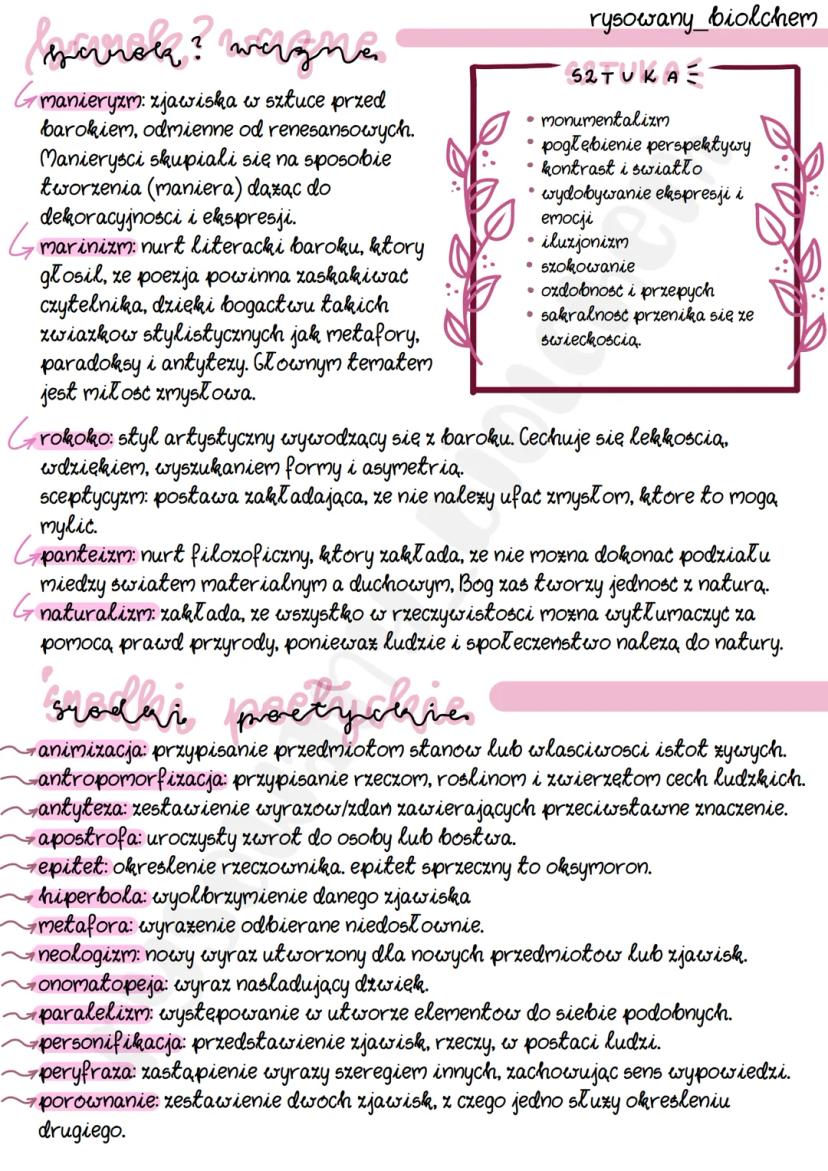 rysowany_biolchem
barok? ważne.
manieryzm: zjawiska w sztuce przed
barokiem, odmienne od renesansowych.
Manieryści skupiali się na sposobie
tworzenia (maniera) dążąc do
dekoracyjności i ekspresji.
marinizm: nurt literacki baroku, ktory
głosił, ze poezja powinna zaskakiwać
czytelnika, dzięki bogactwu takich
zwiazkow stylistycznych jak metafory,
paradoksy i antytezy. Głownym tematem
jest miłość zmysłowa.
SZTUKA
• monumentalizm
• pogłębienie perspektywy
• kontrast i swiatło
• wydobywanie ekspresji i
emocji
• iluzjonizm
• szokowanie
• ozdobność i przepych
• sakralność przenika się ze
świeckością.
rokoko: styl artystyczny wywodzący się z baroku. Cechuje się lekkością,
wdziękiem, wyszukaniem formy i asymetrią.
sceptycyzm: postawa zakładająca, ze nie nalezy ufać zmysłom, ktore to mogą
mylić.
panteizm: nurt filozoficzny, ktory zakłada, ze nie mozna dokonać podziału
miedzy swiatem materialnym a duchowym, Bog zas tworzy jedność z naturą.
naturalizm: zakłada, ze wszystko w rzeczywistości mozna wytłumaczyć za
pomocą prawd przyrody, poniewaz ludzie i społeczenstwo nalezą do natury.
środki poetyckie.
animizacja: przypisanie przedmiotom stanow lub wlasciwosci istot zywych.
antropomorfizacja: przypisanie rzeczom, roślinom i zwierzętom cech ludzkich.
antyteza: zestawienie wyrazow/zdań zawierających przeciwstawne znaczenie.
apostrofa: uroczysty zwrot do osoby lub bostwa.
epitet: określenie rzeczownika. epitet sprzeczny to oksymoron.
hiperbola: wyolbrzymienie danego zjawiska
metafora: wyrazenie odbierane niedosłownie.
neologizm: nowy wyraz utworzony dla nowych przedmiotow lub zjawisk.
onomatopeja: wyraz nasladujący dzwięk.
paralelizm: występowanie w utworze elementow do siebie podobnych.
personifikacja: przedstawienie zjawisk, rzeczy, w postaci ludzi.
peryfraza: zastąpienie wyrazy szeregiem innych, zachowując sens wypowiedzi.
porownanie: zestawienie dwoch zjawisk, z czego jedno słuzy określeniu
drugiego.